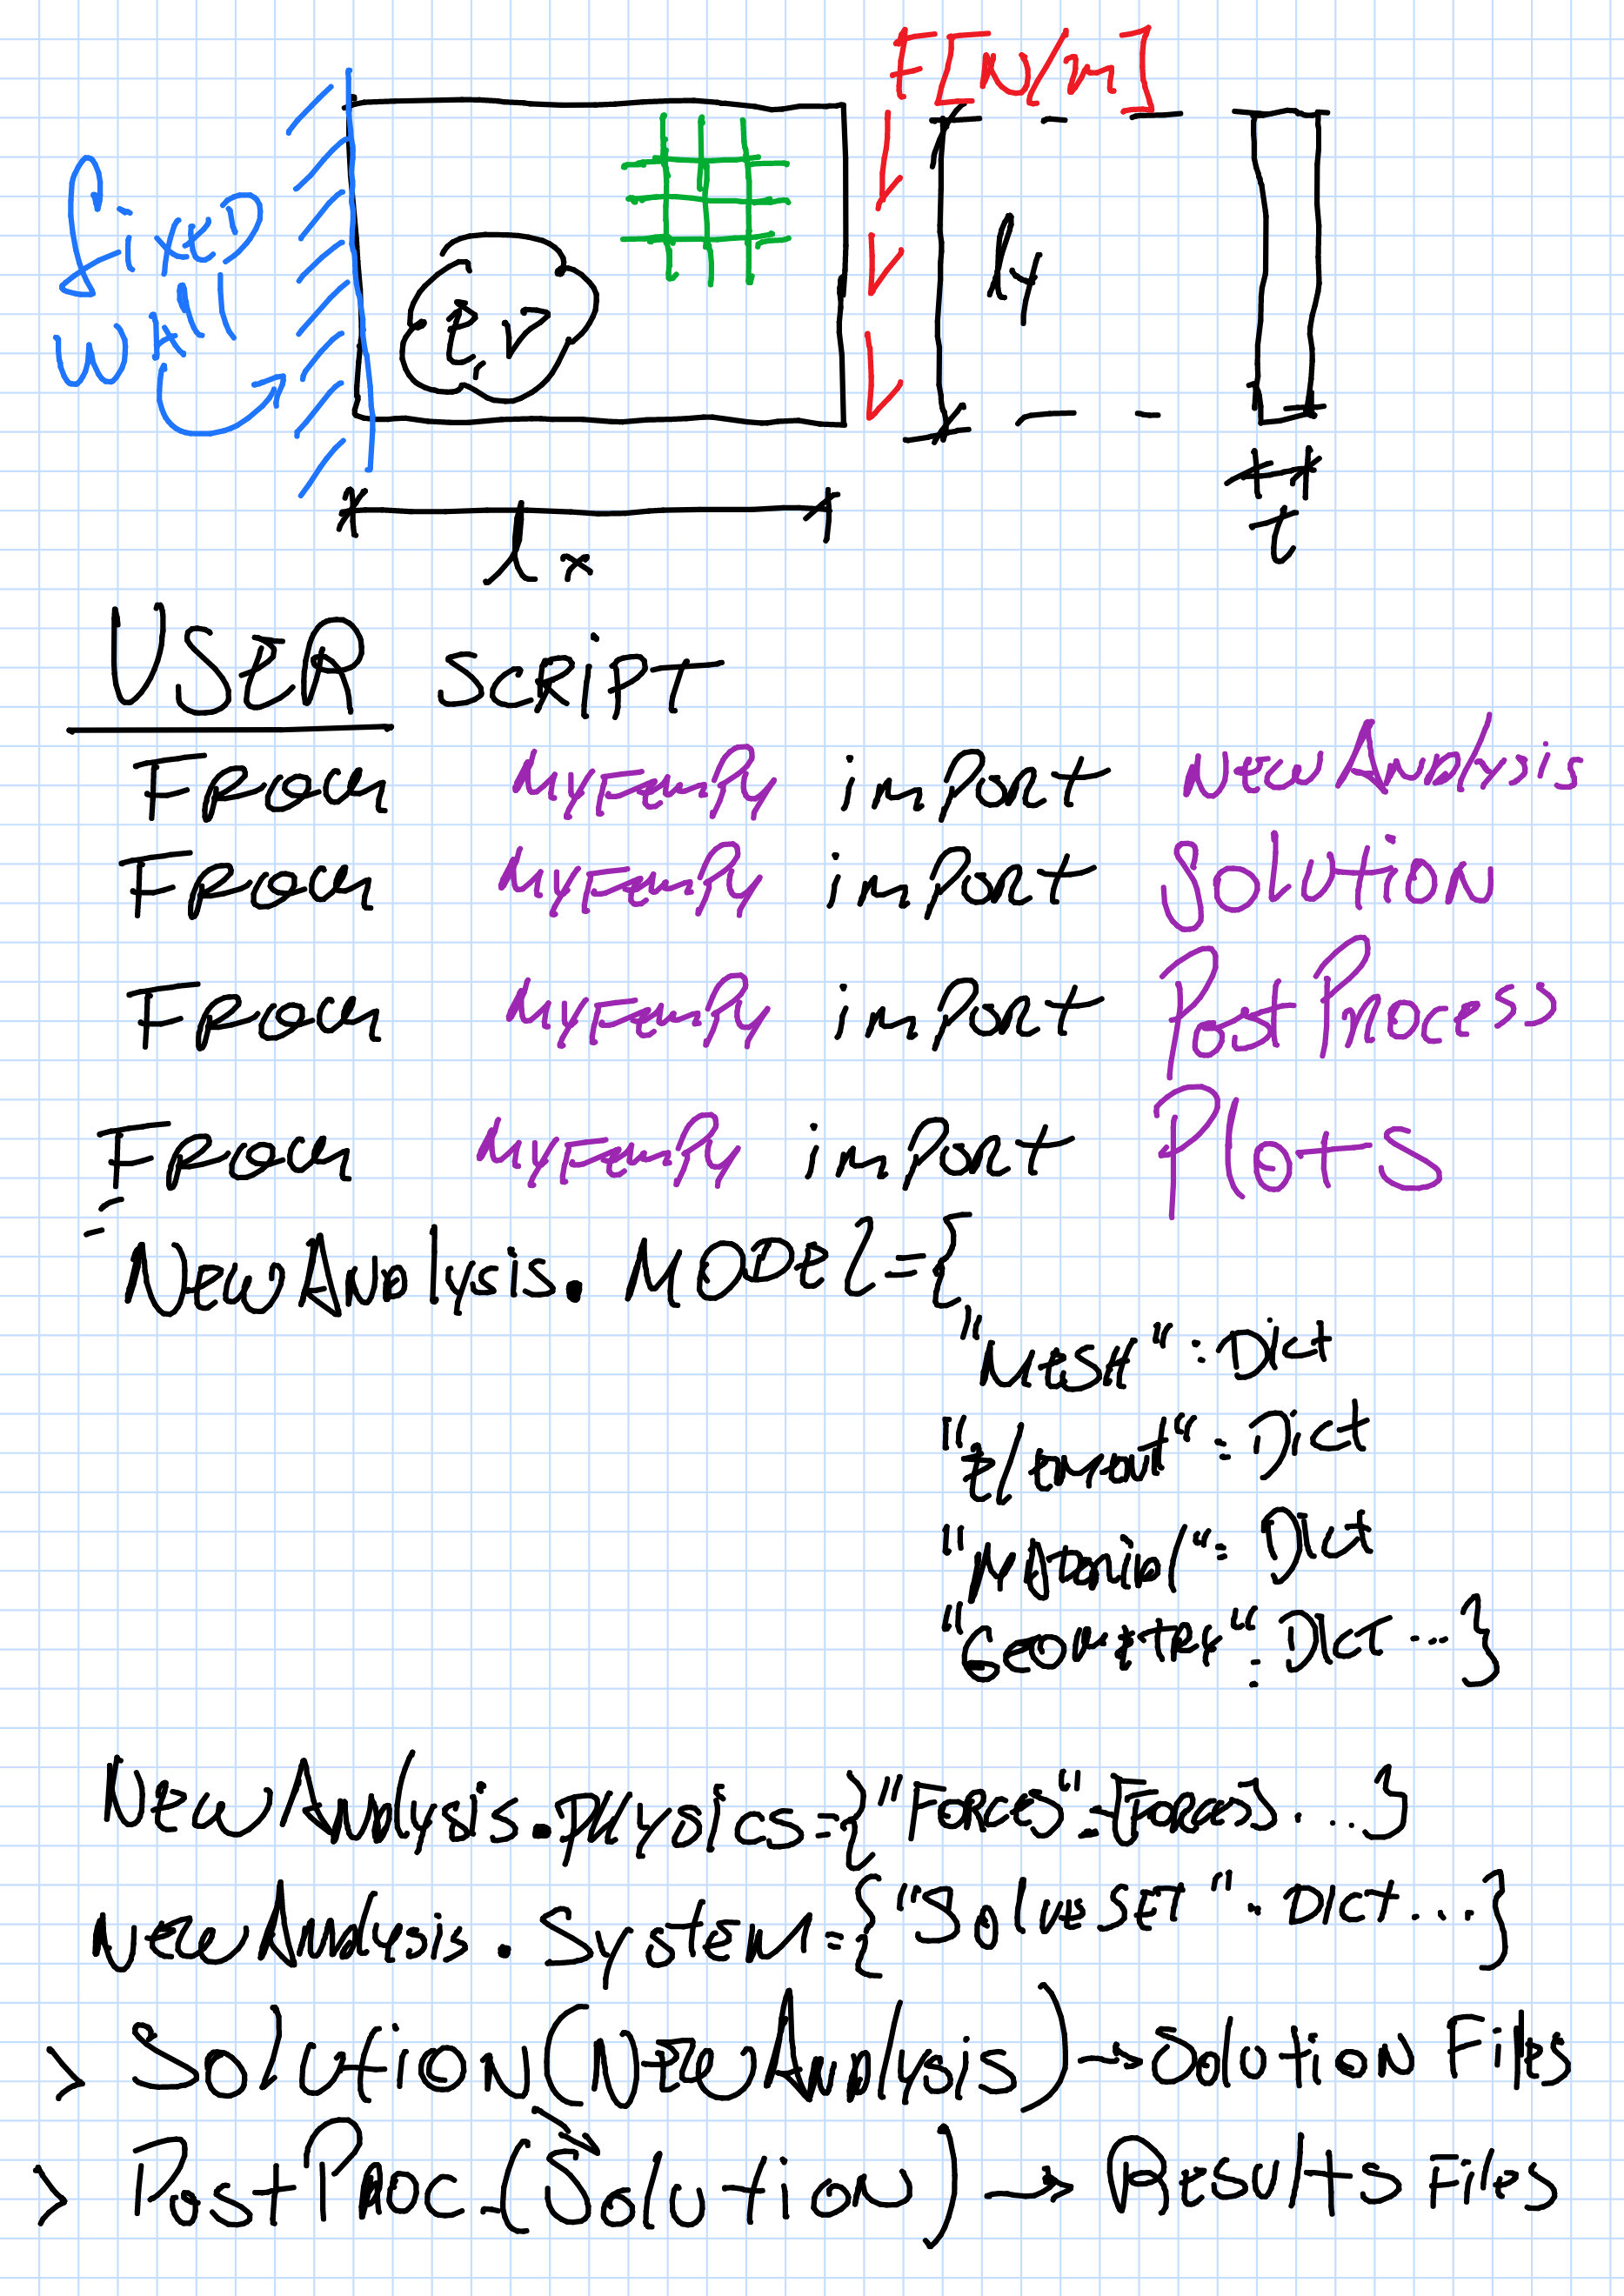 F[N/m]
fixed
wall
E, ν
ly
lx
t
USER SCRiPT
From MyFemPy imPort NewAnalysis
From MyFemPy imPort Solution
From MyFemPy imPort PostProcess
From MyFemPy imPort Plots
NewAnalysis. MODel={
"MesH": Dict
"Element": Dict
"Material": Dict
"Geometry": Dict ...}
NewAnalysis.PHysics={"Forces": {Forces}. ...}
NewAnalysis. System={"SolveSET": Dict...}
> Solution(NewAnalysis)→Solution Files
> PostProc.(Solution)→Results Files